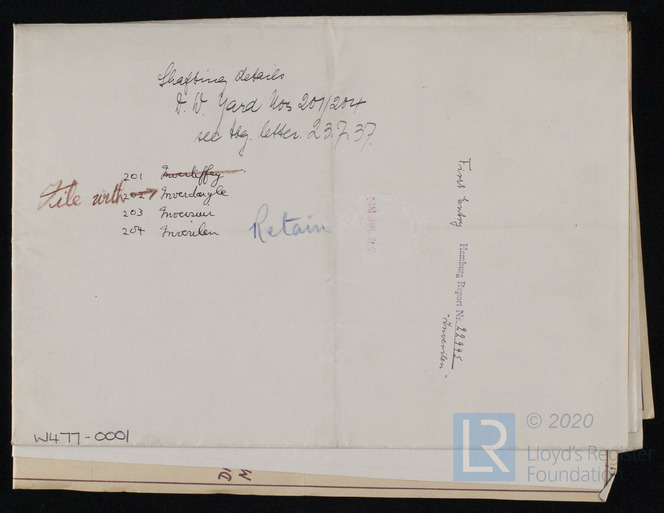 Shafting details
D. W. Yard Nos 201/204
see Hbg. letter. 23.7.37.
201 Inverliffey
File with 202 Inverdargle
203 Inversuir
204 Inverilen
Retain
First Entry
Hamburg Report Nr. 22995
"Inverilen"
W477-0001
DI
M
LR
© 2020
Lloyd's Register
Foundation